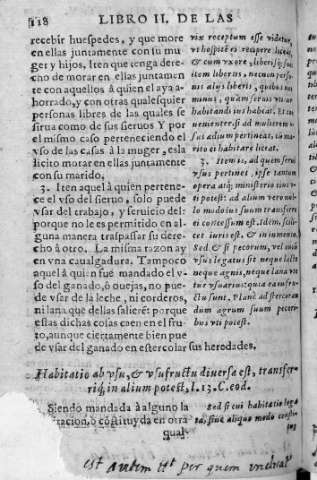 118 LIBRO II. DE LAS
recebir huespedes, y que more
en ellas juntamente con su mu
ger y hijos, Iten que tenga dere
cho de morar en ellas juntamen
te con aquellos à quien el aya a
horrado, y con otras qualesquier
personas libres de las quales se
sirua como de sus sieruos Y por
el mismo caso perteneciendo el
vso de las casas à la muger, esla
licito morar en ellas juntamente
con su marido.
3. Iten aquel à quien pertene-
ce el vso del sieruo, solo puede
vsar del trabajo, y seruicio del:
porque no le es permitido en al
guna manera traspassar su dere
cho à otro. La misma razon ay
en vna caualgadura. Tampoco
aquel à quien fue mandado el v
so del ganado, ò ouejas, no pue-
de vsar de la leche, ni corderos,
ni lana que dellas saliere: porque
estas dichas cosas caen en el fru-
to, aunque ciertamente bien pue
de vsar del ganado en estercolar sus heredades.
vix receptum esse videtur,
vt hospitē ei recipere liceat,
& cum vxore, liberisque suis
item libertis, necnon perso-
nis alijs liberis, quibus nō
minus, quàm seruis vtatur
habitandi ius habeat. Et con
uenienter si ad mulierem v-
sus ædium pertineat, cū ma-
rito ei habitare liceat.
3. Item is, ad quem serui
vsus pertinet, ipse tantum
opera atque ministerio eius v-
ti potest: ad alium vero nul-
lo modo ius suum transferre
ei concessum est. Idem, scili-
cet iuris est, & in iumento.
Sed & si pecorum, vel ouiū
vsus legatus sit neque lacte
neque agnis, neque lana vte
tur vsuarius: quia ea in fru-
ctu sunt. Planè ad stercoran
dum agrum suum pecori-
bus vti potest.
Habitatio ab vsu, & vsufructu diuersa est, transfer-
rique in alium potest, l. 13. C. eod.
Siendo mandada à alguno la
tacion, ò cōstituyda en otra
qual-
Sed si cui habitatio lega
ta, siue aliquo modo consti-
est autem
per quem